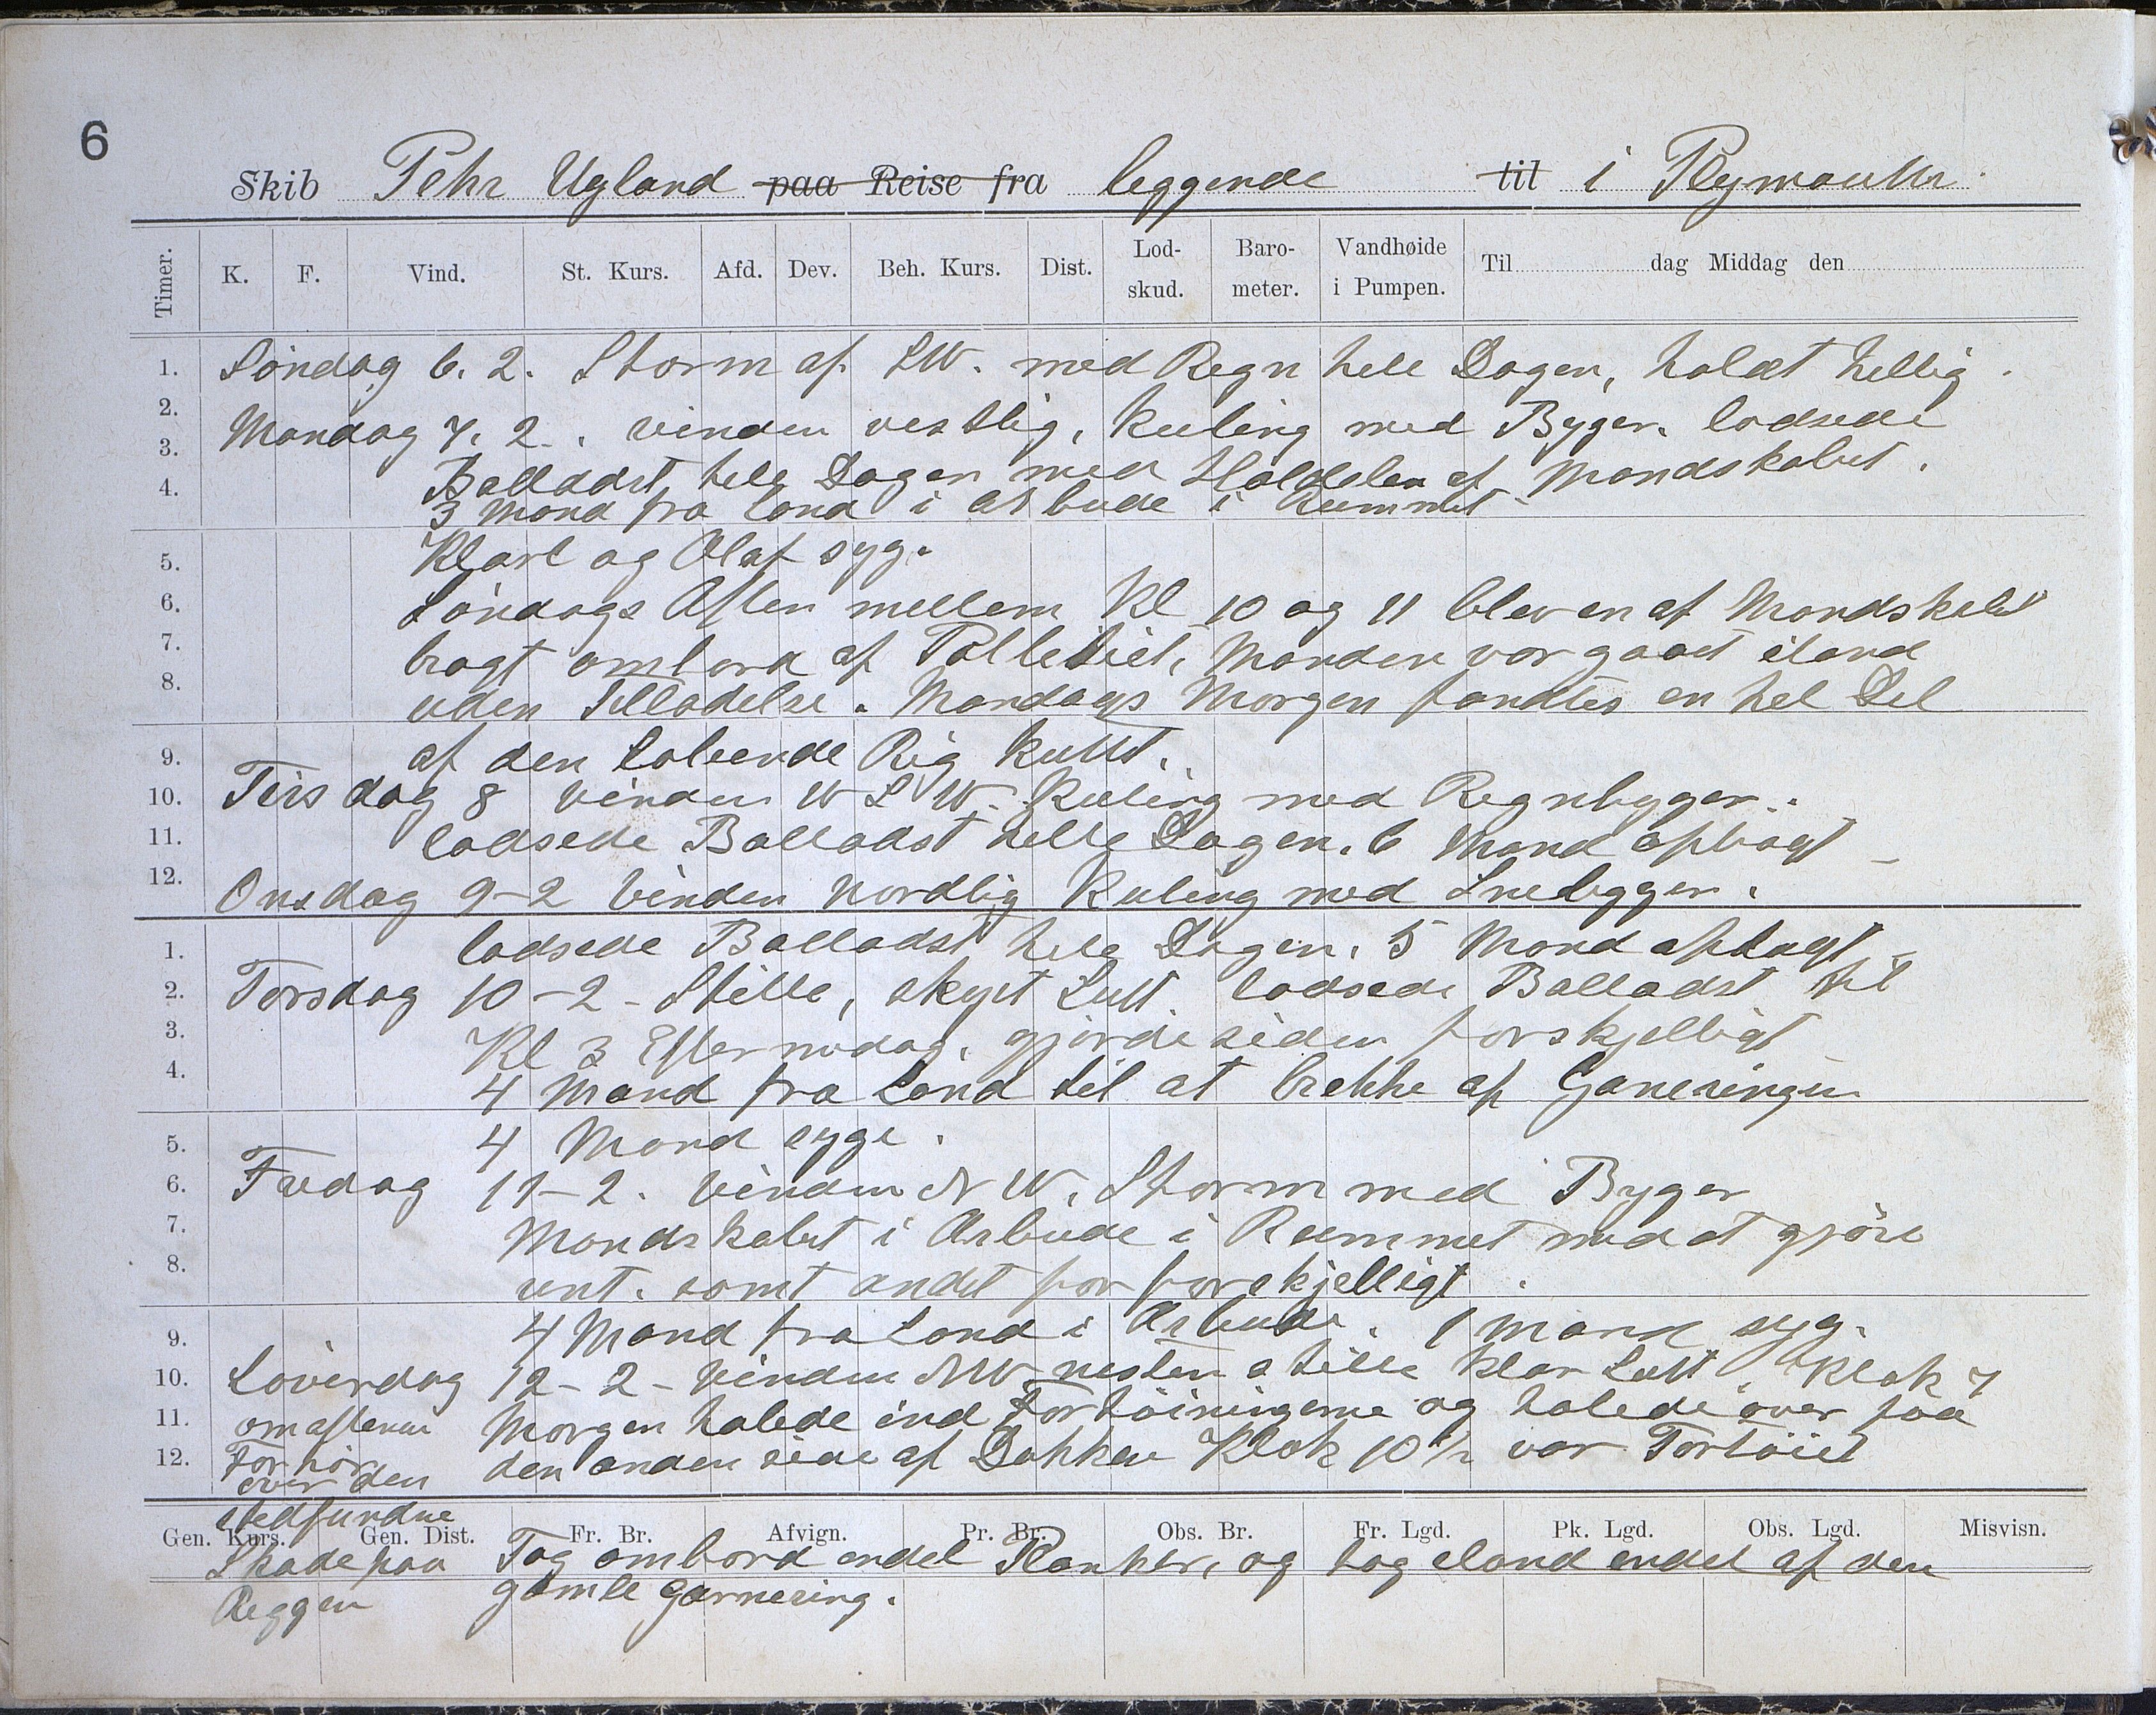 6
Skib Pehr Ugland paa Reise fra leggende til i Plymouth.
Timer. K. F. Vind. St. Kurs. Afd. Dev. Beh. Kurs. Dist. Lod-skud. Baro-meter. Vandhøide i Pumpen. Til dag Middag den
1. Söndag 6. 2. Storm af SW. med Regn hele Dagen, holdt hellig.
2. Mandag 7. 2. vinden vestlig, Kuling med Byger. lodsede
3. Balladst hele Dagen med Haldelen af Mandskabet.
4. 3 Mand fra Land i Arbeide i Rummet
5. Karl og Olaf syg.
6. Söndags Aften mellem Kl 10 og 11 blev en af Mandskabet
7. bragt ombord af Pollitiet, Manden var gaaet iland
8. uden Tilladelse. Mandags Morgen fandtes en hel Del
9. af den Löbende Rig kuttet.
10. Tirsdag 8 Vinden WSW. Kuling med Regnbyger.
11. lodsede Balladst hele Dagen. 6 Mand oplagt
12. Onsdag 9-2 Vinden Nordlig Kuling med Snebyger.
1. lodsede Balladst hele Dagen. 5 Mand oplagt
2. Torsdag 10-2- Stille, skyet Luft lodsede Balladst til
3. Kl 3 Eftermidag, gjorde siden forskjelligt
4. 4 Mand fra Land til at brekke af Garneringen
5. 4 Mand syge.
6. Fredag 11-2. Vinden NW. Storm med Byger
7. Mandskabet i Arbeide i Rummet med at gjöre
8. rent. samt andet for forskjelligt.
9. 4 Mand fra Land i Arbeide. 1 Mand syg.
10. Löverdag 12-2- Vinden NW nesten stille klar Luft. Klok 7
11. omaftenen Morgen halede ind Fortöiningerne og halede over paa
12. Forhör over den den anden side af Dokken Klok 10 1/2 var Fortöiet
stedfundne
Gen. Kurs. Gen. Dist. Fr. Br. Afvign. Pr. Br. Obs. Br. Fr. Lgd. Pk. Lgd. Obs. Lgd. Misvisn.
Skade paa Tog ombord endel Planker, og tog iland endel af den
Reggen gamle garnering.